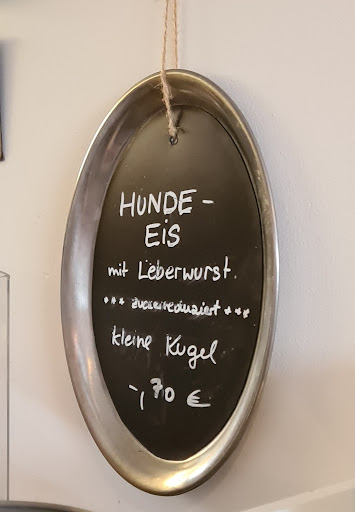 HUNDE-
EiS
mit Leberwurst.
*** zuckerreduziert ***
kleine Kugel
-,70 €